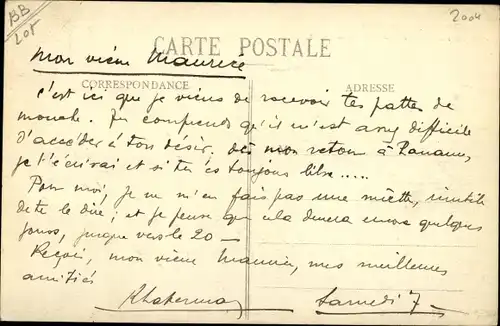 BB
205
2004
CARTE POSTALE
Mon vieux Maurice
CORRESPONDANCE
ADRESSE
C'est ici que je viens de recevoir tes pattes de
mouche. Tu comprends qu'il m'est assez difficile
d'accéder à ton désir. Dès mon retour à Paname,
je t'écrirai et si tu es toujours libre.....
Pour moi, je ne m'en fais pas une miette, inutile
de te le dire ; et je pense que cela durera encore quelques
jours, jusque vers le 20 —
Reçois, mon vieux Maurice, mes meilleures
amitiés
Samedi 7 —